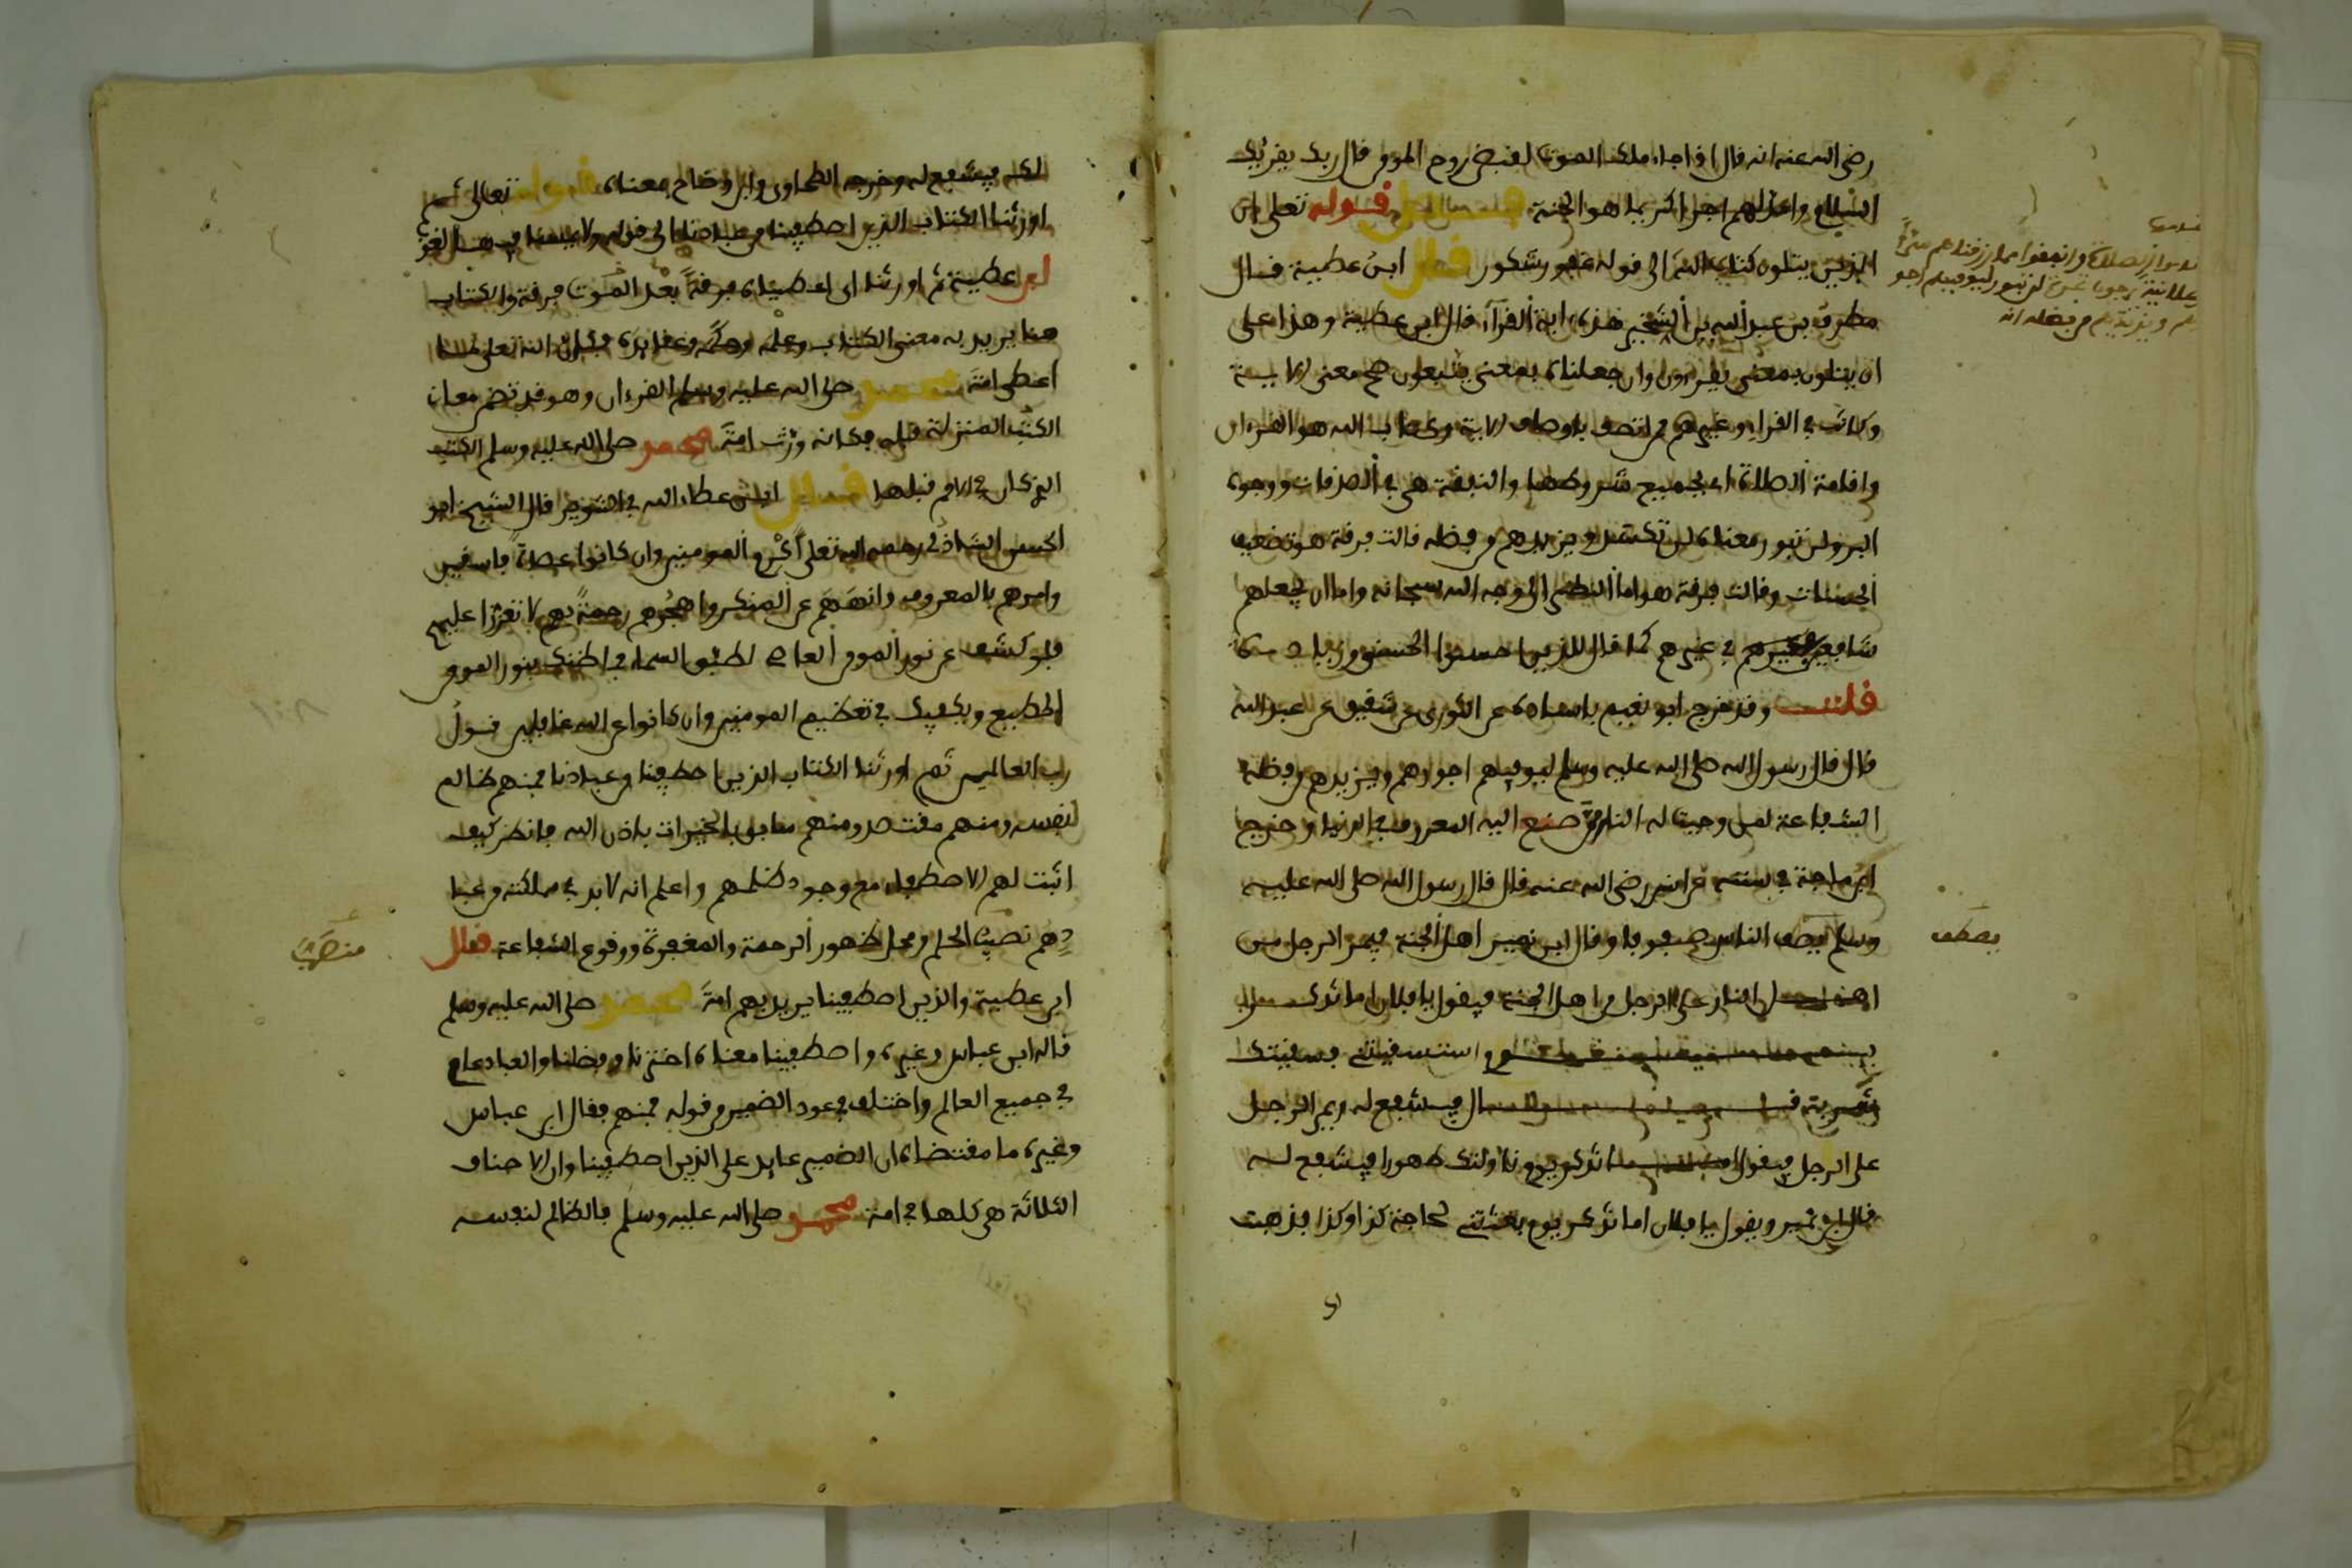 رضى الله عنه انه قال اذا جاء ملك الموت لقبض روح المومن قال ربك يقرئك
السلام واعد لهم اجرا كريما هو الجنة قوله تعلى ان
الذين يتلون كتاب الله الى قوله غفور شكور قال ابن عطية قال
مطرف بن عبد الله بن الشخير هذه اية القرآء قال ابن عطية وهذا على
ان يتلون بمعنى يقرءون وان جعلناه بمعنى يتبعون صح معنى الاية
وكانت في القراء وغيرهم ممن اتصف باوصاف الاية وكتاب الله هو القرءان
واقامة الصلاة اى بجميع شروطها والنفقة هى في الصدقات ووجوه
البر ولن تبور معناه لن تكسد ويزيدهم من فضله قالت فرقة هو تضعيف
الحسنات وقالت فرقة هو اما النظر الى وجه الله سبحانه واما ان يجعلهم
شافعين في غيرهم كما قال للذين احسنوا الحسنى وزيادة
قلت وقد خرج ابو نعيم باسناده عن الثورى عن شقيق عن عبد الله
قال قال رسول الله صلى الله عليه وسلم ليوفيهم اجورهم ويزيدهم من فضله
الشفاعة لمن وجبت له النار ممن صنع اليه المعروف في الدنيا وخرج
ابن ماجة في سننه عن انس رضى الله عنه قال قال رسول الله صلى الله عليه
وسلم يصف الناس صفوفا وقال ابن نمير اهل الجنة فيمر الرجل من
اهل النار على الرجل من اهل الجنة فيقول يا فلان اما تذكر
يوم استسقيتنى فسقيتك
شربة قال فيشفع له ويمر الرجل
على الرجل فيقول اما تذكر يوم ناولتك طهورا فيشفع له
قال ابن نمير ويقول يا فلان اما تذكر يوم بعثتنى لحاجة كذا وكذا فذهبت
الصلاة وانفقوا مما رزقناهم سرا
وعلانية يرجون تجارة لن تبور ليوفيهم اجو
رهم ويزيدهم من فضله انه
يصطف
لك فيشفع له وخرجه الطحاوى وابن وضاح بمعناه قوله تعالى ثم
اورثنا الكتاب الذين اصطفينا من عبادنا الى قوله ولا يمسنا فيها لغوب
ابن عطية ثم اورثنا اى اعطيناه فرقة بعد الموت فرقة والكتاب
هنا يريد به معنى الكتاب وعلمه وحكمه وعقايده فكان الله تعلى لما
اعطى امة محمد صلى الله عليه وسلم القرءان وهو قد تضمن معان
الكتب المنزلة قبله فكانه ورث امة محمد صلى الله عليه وسلم الكتب
الذى كان في الامم قبلها قال ابن عطاء الله في التنوير قال الشيخ ابو
الحسن الشاذلى رحمه الله تعلى اكرم المومنين وان كانوا عصاة فاسقين
وامرهم بالمعروف وانههم عن المنكر واهجرهم رحمة بهم لا تعززا عليهم
فلو كشف عن نور المومن العاصى لطبق السماء فما ظنك بنور المومن
المطيع ويكفيك في تعظيم المومنين وان كانوا عن الله غافلين قول
رب العالمين ثم اورثنا الكتاب الذين اصطفينا من عبادنا فمنهم ظالم
لنفسه ومنهم مقتصد ومنهم سابق بالخيرات باذن الله فانظر كيف
اثبت لهم الاصطفاء مع وجود ظلمهم واعلم انه لا بد في مملكته من عبا
دهم نصيب الحلم ومحل ظهور الرحمة والمغفرة ووقوع الشفاعة قال
ابن عطية والذين اصطفينا يريد بهم امة محمد صلى الله عليه وسلم
قاله ابن عباس وغيره واصطفينا معناه اخترنا وفضلنا والعباد عام
في جميع العالم واختلف في عود الضمير من قوله فمنهم فقال ابن عباس
وغيره ما مقتضاه ان الضمير عايد على الذين اصطفينا وان الاصناف
الثلاثة هى كلها في امة محمد صلى الله عليه وسلم فالظالم لنفسه
١٠٨